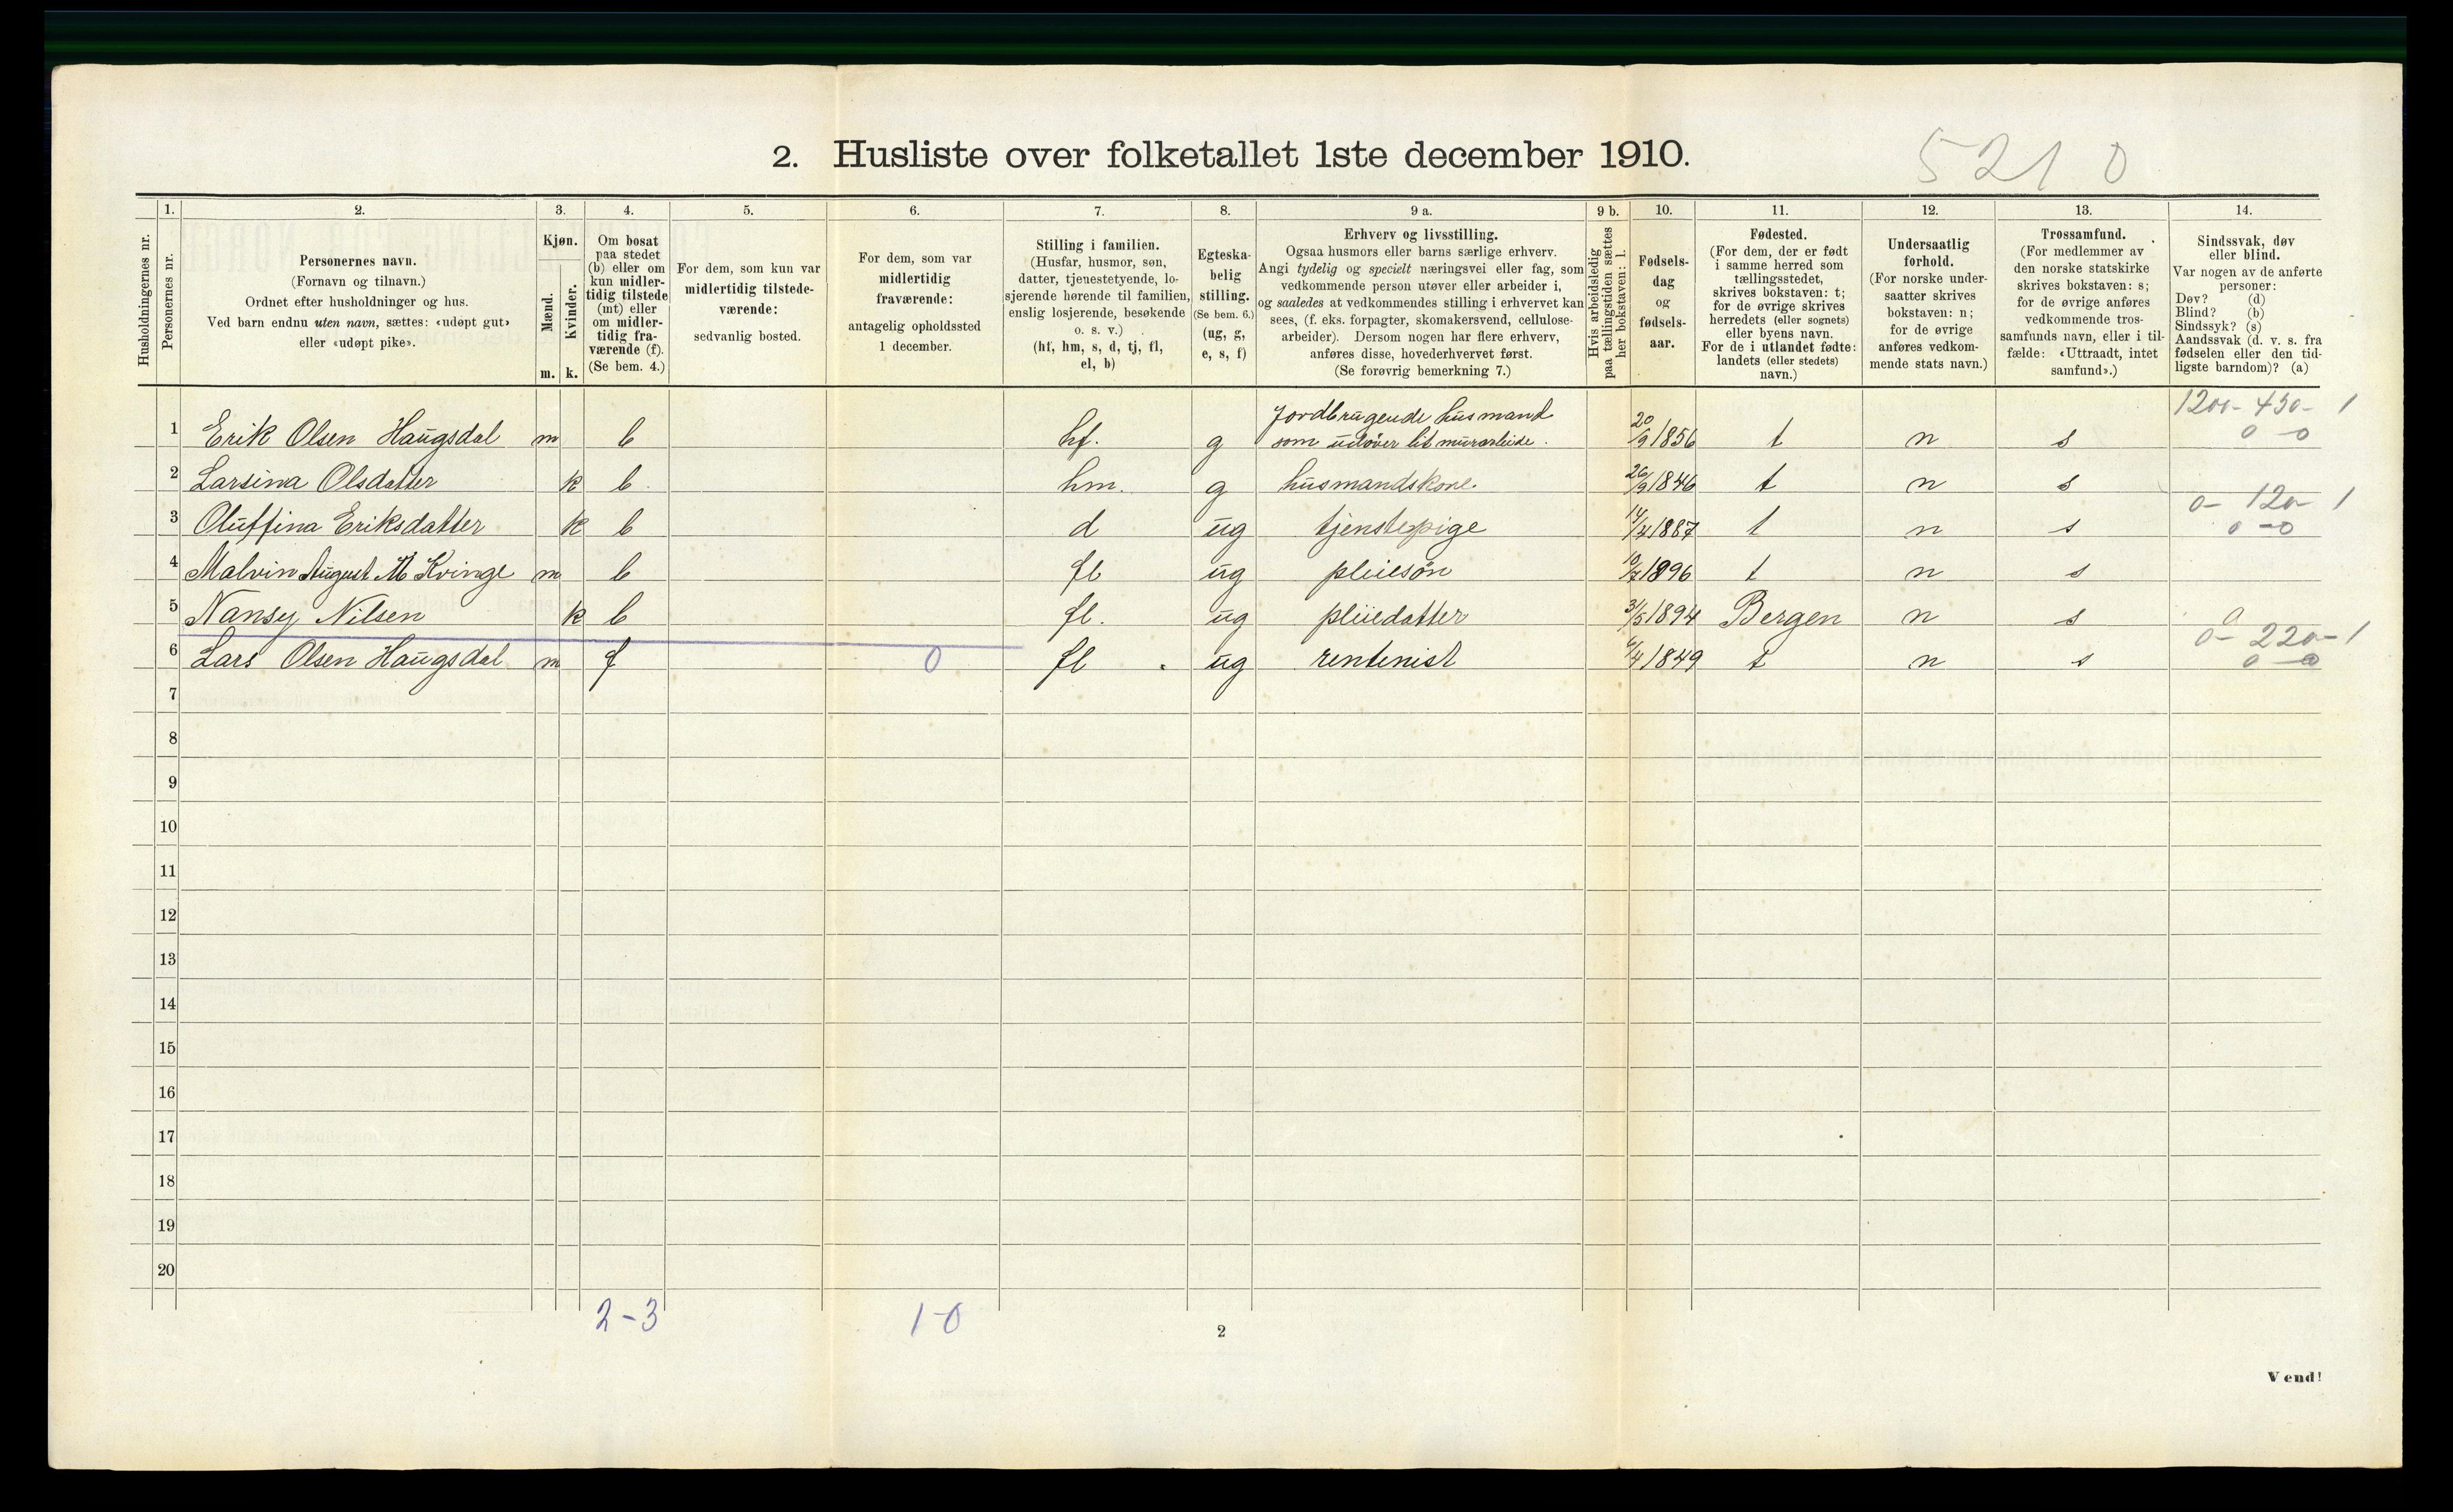 2. Husliste over folketallet 1ste december 1910.
5210
Husholdningernes nr.
1.
Personernes nr.
2.
Personernes navn.
(Fornavn og tilnavn.)
Ordnet efter husholdninger og hus.
Ved barn endnu uten navn, sættes: «udøpt gut»
eller «udøpt pike».
3.
Kjøn.
Mænd.
Kvinder.
m. k.
4.
Om bosat
paa stedet
(b) eller om
kun midler-
tidig tilstede
(mt) eller
om midler-
tidig fra-
værende (f).
(Se bem. 4.)
5.
For dem, som kun var
midlertidig tilstede-
værende:
sedvanlig bosted.
6.
For dem, som var
midlertidig
fraværende:
antagelig opholdssted
1 december.
7.
Stilling i familien.
(Husfar, husmor, søn,
datter, tjenestetyende, lo-
sjerende hørende til familien,
enslig losjerende, besøkende
o. s. v.)
(hf, hm, s, d, tj, fl,
el, b)
8.
Egteska-
belig
stilling.
(Se bem. 6.)
(ug, g,
e, s, f)
9 a.
Erhverv og livsstilling.
Ogsaa husmors eller barns særlige erhverv.
Angi tydelig og specielt næringsvei eller fag, som
vedkommende person utøver eller arbeider i,
og saaledes at vedkommendes stilling i erhvervet kan
sees, (f. eks. forpagter, skomakersvend, cellulose-
arbeider). Dersom nogen har flere erhverv,
anføres disse, hovederhvervet først.
(Se forøvrig bemerkning 7.)
9 b.
Hvis arbeidsledig
paa tællingstiden sættes
her bokstaven: l.
10.
Fødsels-
dag
og
fødsels-
aar.
11.
Fødested.
(For dem, der er født
i samme herred som
tællingsstedet,
skrives bokstaven: t;
for de øvrige skrives
herredets (eller sognets)
eller byens navn.
For de i utlandet fødte:
landets (eller stedets)
navn.)
12.
Undersaatlig
forhold.
(For norske under-
saatter skrives
bokstaven: n;
for de øvrige
anføres vedkom-
mende stats navn.)
13.
Trossamfund.
(For medlemmer av
den norske statskirke
skrives bokstaven: s;
for de øvrige anføres
vedkommende tros-
samfunds navn, eller i til-
fælde: «Uttraadt, intet
samfund».)
14.
Sindssvak, døv
eller blind.
Var nogen av de anførte
personer:
Døv? (d)
Blind? (b)
Sindssyk? (s)
Aandssvak (d. v. s. fra
fødselen eller den tid-
ligste barndom)? (a)
Jordbrugende husmand 1200-450-1
1 Erik Olsen Haugsdal m b hf. g som udøver lit murarbeide. 20/9 1856 t n s 0-0
2 Larsina Olsdatter k b. hm. g husmandskone. 26/9 1846 t n s
0-120-1
3 Oluffina Eriksdatter k b d ug tjenstepige 14/4 1887 t n s 0-0
4 Malvin August M Kvinge m b fl ug pleiesøn 10/7 1896 t n s
5 Nansy Nilsen k b fl. ug pleiedatter 3/5 1894 Bergen n s 0
0-220-1
6 Lars Olsen Haugsdal m f 0 fl. ug rentenist 6/4 1849 t n s 0-0
7
8
9
10
11
12
13
14
15
16
17
18
19
20
2-3 1-0
2
Vend!